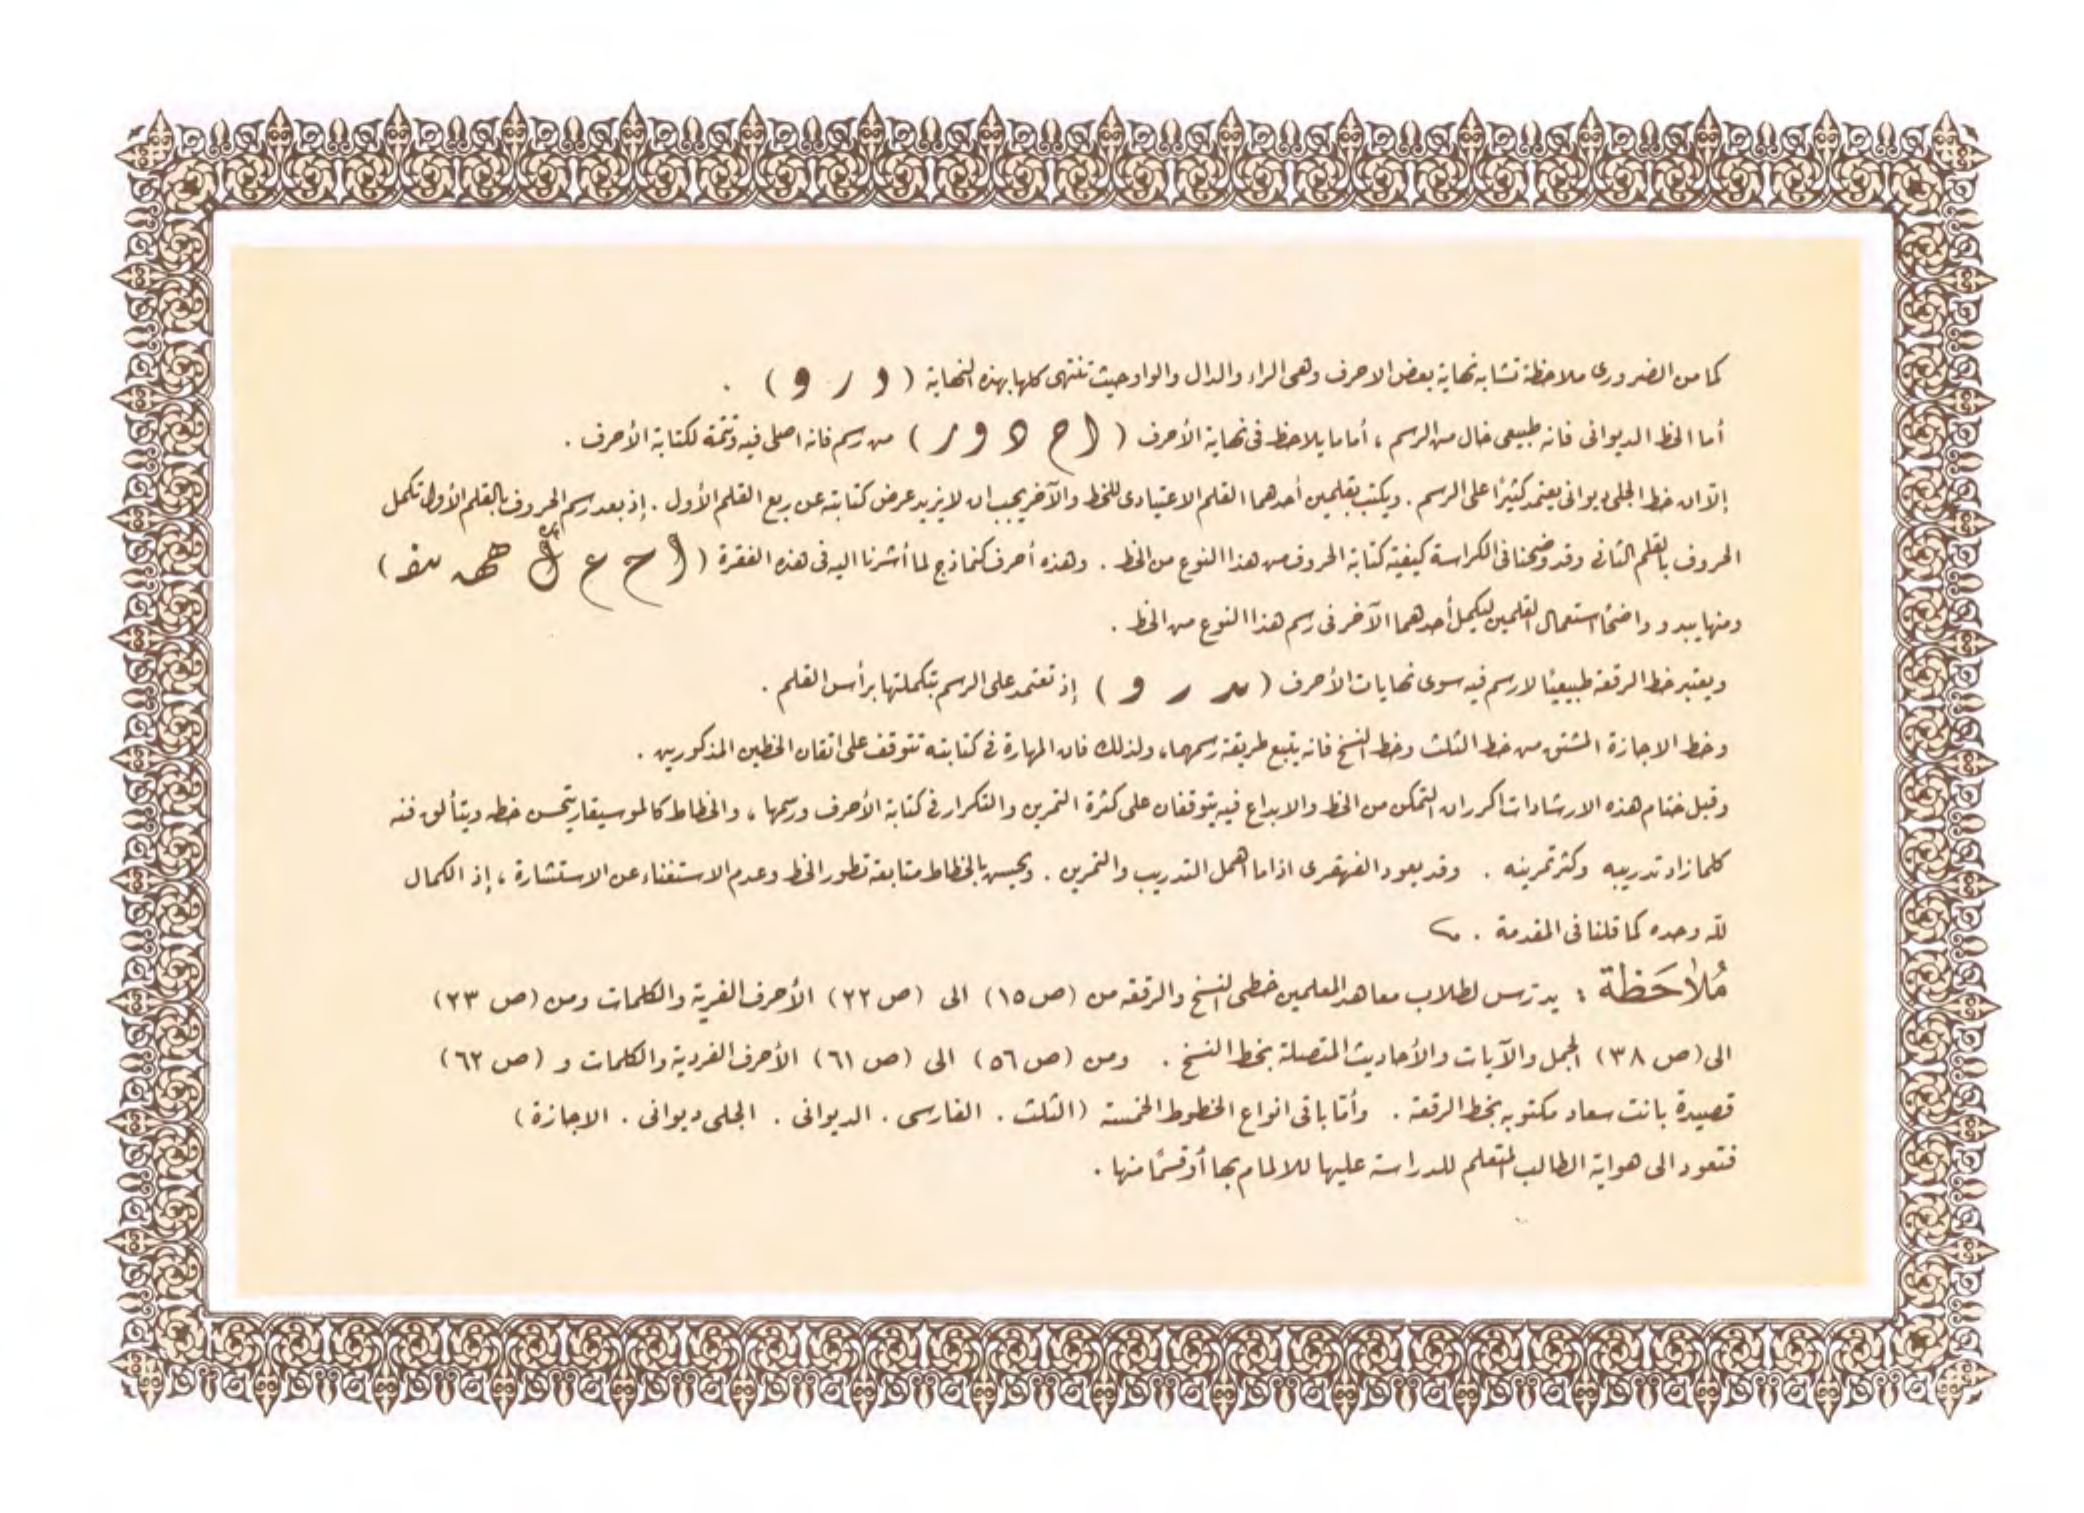 كما من الضرورى ملاحظة تشابه نهاية بعض الاحرف وهى الراء والدال والواو حيث تنتهى كلها بهذه النهاية ( د ر و ) .
أما الخط الديوانى فانه طبيعى خال من الرسم ، أما ما يلاحظ فى نهاية الأحرف ( ا ح د و ر ) من رسم فانه اصلى فيه وتتمة لكتابة الأحرف .
إلا ان خط الجلى ديوانى يعتمد كثيرًا على الرسم . ويكتب بقلمين أحدهما القلم الاعتيادى للخط والآخر يجب ان لا يزيد عرض كتابته عن ربع القلم الأول . إذ بعد رسم الحروف بالقلم الأول تكمل
الحروف بالقلم الثانى وقد وضحنا فى الكراسة كيفية كتابة الحروف من هذا النوع من الخط . وهذه أحرف كنماذج لما أشرنا اليه فى هذه الفقرة ( ا ح ع ك هـ )
ومنها يبدو واضحًا استعمال القلمين ليكمل أحدهما الآخر فى رسم هذا النوع من الخط .
ويعتبر خط الرقعة طبيعيًا لا رسم فيه سوى نهايات الأحرف ( ر و ) إذ تعتمد على الرسم بتكملتها برأس القلم .
وخط الاجازة المشتق من خط الثلث وخط النسخ فانه يتبع طريقة رسمهما ، ولذلك فان المهارة فى كتابته تتوقف على اتقان الخطين المذكورين .
وقبل ختام هذه الارشادات اكرر ان التمكن من الخط والابداع فيه يتوقفان على كثرة التمرين والتكرار فى كتابة الأحرف ورسمها ، والخطاط كالموسيقار يتحسن خطه ويتألق فنه
كلما زاد تدريبه وكثر تمرينه . وقد يعود القهقرى اذا ما اهمل التدريب والتمرين . ويحسن بالخطاط متابعة تطور الخط وعدم الاستغناء عن الاستشارة ، إذ الكمال
لله وحده كما قلنا فى المقدمة .
مُلاحَظة : يدرس لطلاب معاهد المعلمين خطى النسخ والرقعة من (ص ١٥) الى (ص ٢٢) الأحرف الفردية والكلمات ومن (ص ٢٣)
الى (ص ٣٨) الجمل والآيات والأحاديث المتصلة بخط النسخ . ومن (ص ٥٦) الى (ص ٦١) الأحرف الفردية والكلمات و (ص ٦٢)
قصيدة بانت سعاد مكتوبة بخط الرقعة . وأمّا باقى انواع الخطوط الخمسة (الثلث . الفارسى . الديوانى . الجلى ديوانى . الاجازة )
فتعود الى هواية الطالب المتعلم للدراسة عليها للالمام بها أو قسمًا منها .